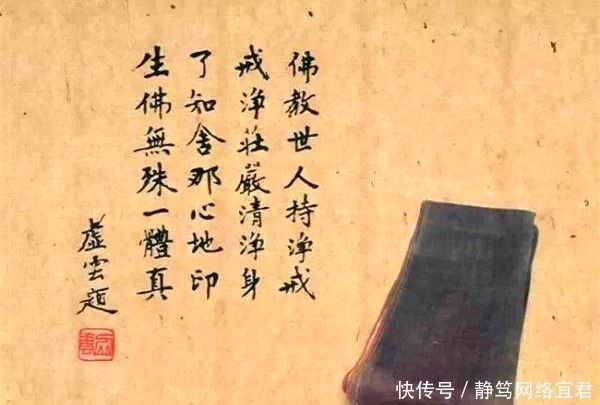 佛教世人持淨戒
戒淨莊嚴清淨身
了知舍那心地印
生佛無殊一體真
虛雲題
快传号／静笃网络宜君